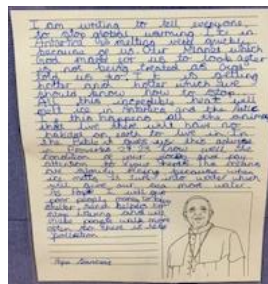 I am writing to tell everyone
to stop global warming. It is
Antartica is melting very quickly
because of us. Our Planet which
God made for us to look after
is not being treated as God
told us to! It is getting
hotter and hotter which we
should know how to stop.
All this incredible heat will
melt ice in Antartica and the Artic
if this happens all the animals
that live there will have no
habitat on earth to live in. In
the Bible it gives us this advice
in Proverbs 27:23 'Know well the
condition of your flocks and pay
attention to your herds'. The oceans
are slowly rising because when
ice melts it turns into water which
will give our sea more water.
As Pope I will give
poor people money to buy
shelter. Send helpers to
stop littering and will
make people walk more
often so there is less
pollution.
Pope Francis